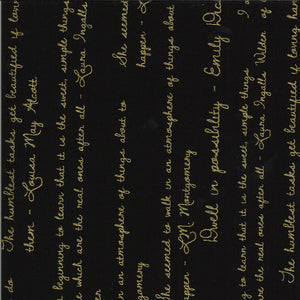 do The humblest tasks get beautified if lovi
them - Louisa May Alcott
beginning to learn that it is the sweet, simple things
which are the real ones after all - Laura Ingalls
an atmosphere of things about to She seemed
gomery happen - L
She seemed to walk in an atmosphere of things about
happen - L.M. Montgomery
Dwell in possibility - Emily Dic
to learn that it is the sweet, simple things I a
are the real ones after all - Laura Ingalls Wilder of
The humblest tasks get beautified if loving han